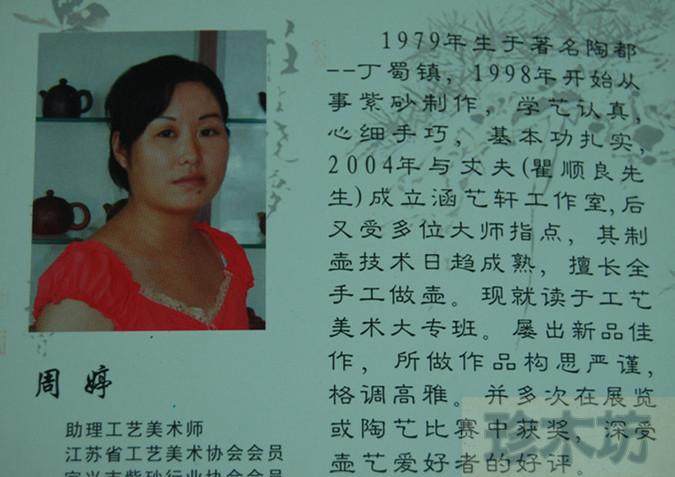 1979年生于著名陶都
--丁蜀镇，1998年开始从
事紫砂制作，学艺认真，
心细手巧，基本功扎实，
2004年与丈夫(瞿顺良先
生)成立涵艺轩工作室,后
又受多位大师指点，其制
壶技术日趋成熟，擅长全
手工做壶。现就读于工艺
美术大专班。屡出新品佳
作，所做作品构思严谨，
格调高雅。并多次在展览
或陶艺比赛中获奖，深受
壶艺爱好者的好评。
周婷
助理工艺美术师
江苏省工艺美术协会会员
宜兴市紫砂行业协会会员
珍木坊